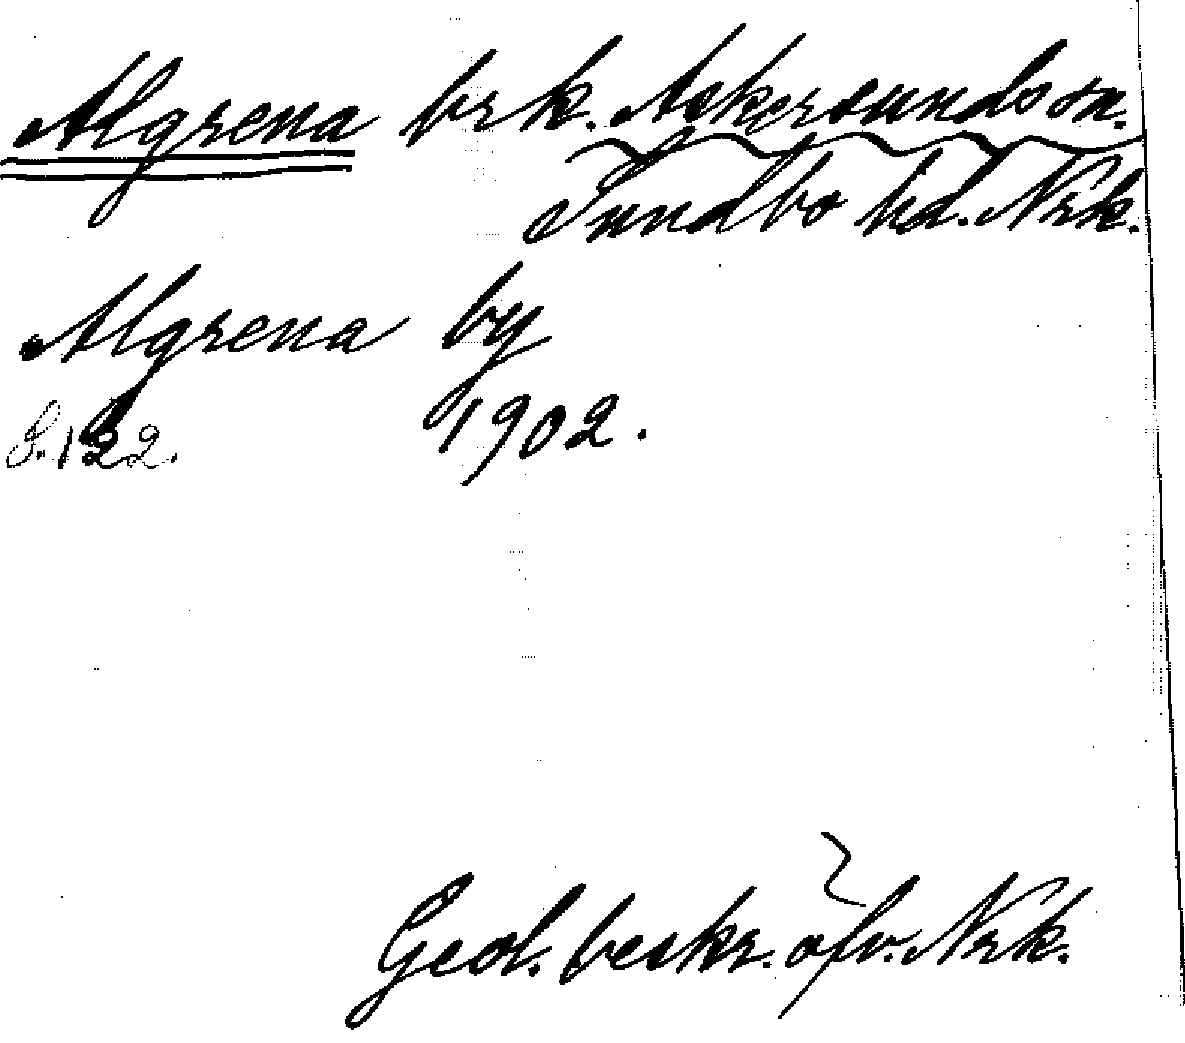 Algrena brk. Askersunds sn.
Sundbo hd. Nrk.
Algrena by
S. 122. 1902.
Geol. beskr. öfv. Nrk.